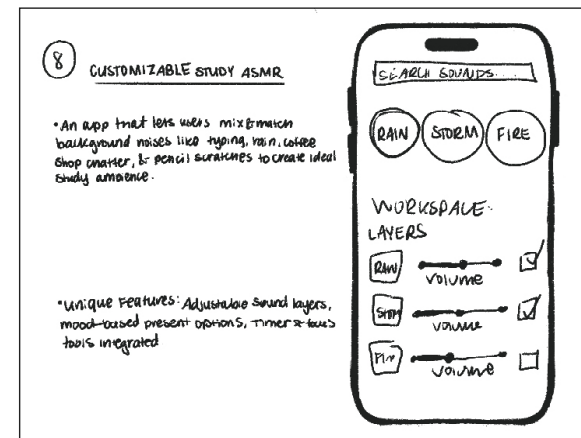 8
CUSTOMIZABLE STUDY ASMR
•An app that lets users mix & match
background noises like typing, rain, coffee
shop chatter, & pencil scratches to create ideal
study ambience.
•Unique Features: Adjustable sound layers,
mood-based present options, Timer & focus
tools integrated
SEARCH SOUNDS...
RAIN STORM FIRE
WORKSPACE
LAYERS
RAIN
volume
STRM
volume
volume